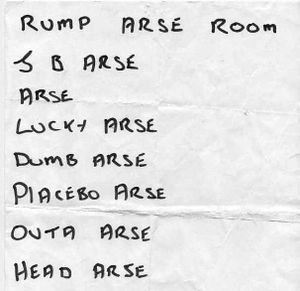 RUMP ARSE ROOM
S B ARSE
ARSE
LUCKY ARSE
DUMB ARSE
PLACEBO ARSE
OUTA ARSE
HEAD ARSE